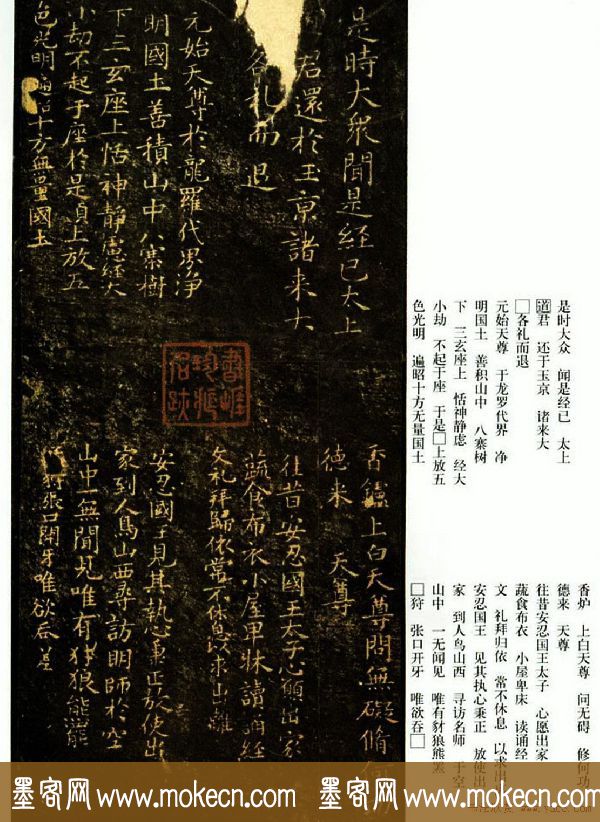 是時大衆聞是経已太上
君還於玉京諸来大
各礼而退
元始天尊於龍羅代界浄
明國土善積山中八寨樹
下三玄座上恬神静慮経大
小劫不起于座於是貞上放五
色光明遍昭十方無量國土
香鑪上白天尊問無礙脩何功
德来 天尊
往昔安忍國王太子心願出家
蔬食布衣小屋卑牀讀誦経
文礼拜歸依常不休息以求出離
安忍國王見其執心秉正放使出
家到人鳥山西尋訪明師於空
山中一無聞見唯有豺狼熊羆
狩張口開牙唯欲吞
是时大众 闻是经已 太上
道君 还于玉京 诸来大
□各礼而退
元始天尊 于龙罗代界 净
明国土 善积山中 八寨树
下 三玄座上 恬神静虑 经大
小劫 不起于座 于是□上放五
色光明 遍昭十方无量国土
香炉 上白天尊 问无碍 修何功
德来 天尊
往昔安忍国王太子 心愿出家
蔬食布衣 小屋卑床 读诵经
文 礼拜归依 常不休息 以求出
安忍国王 见其执心秉正 放使出
家 到人鸟山西 寻访名师 于空
山中 一无闻见 唯有豺狼熊羆
□狩 张口开牙 唯欲吞□
墨客网 www.mokecn.com 墨客网 www.mokecn.com